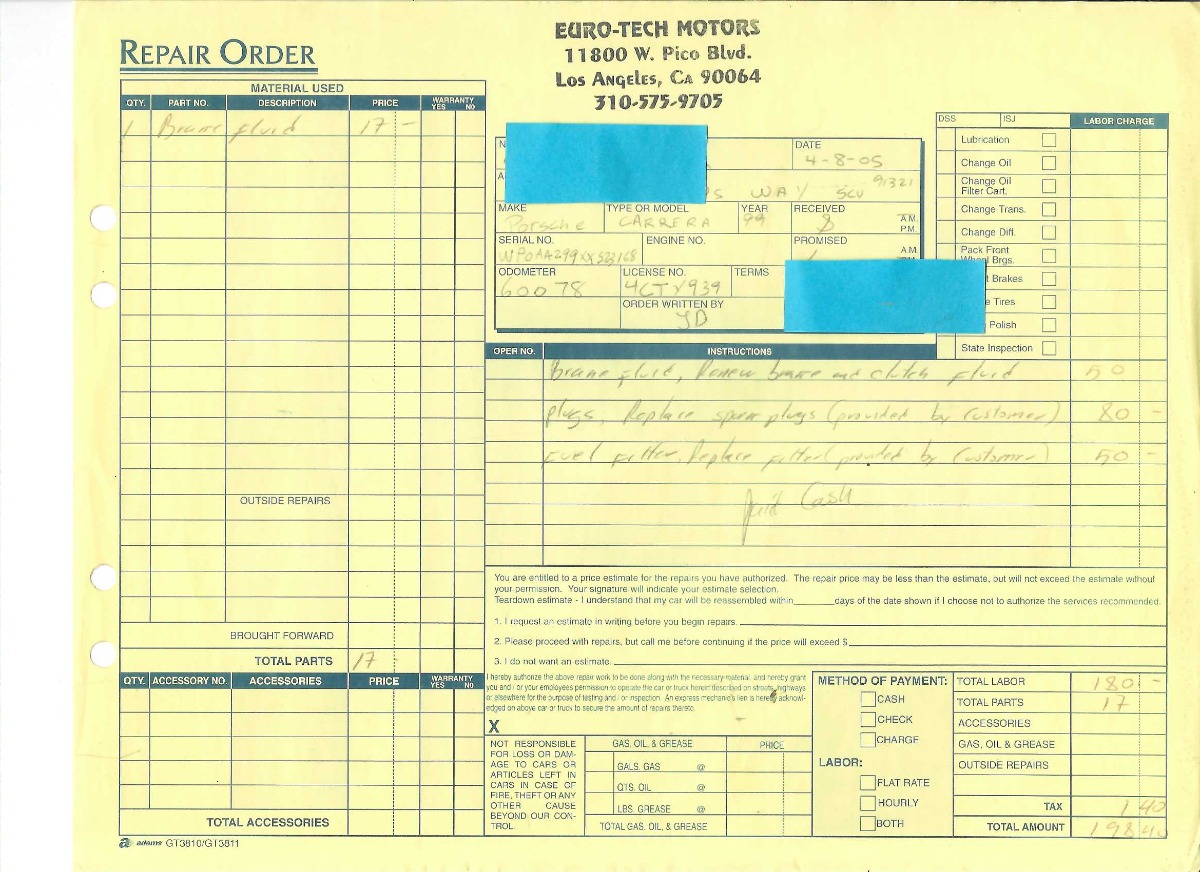 EURO-TECH MOTORS
11800 W. Pico Blvd.
Los Angeles, CA 90064
310-575-9705
REPAIR ORDER
MATERIAL USED
QTY. PART NO. DESCRIPTION PRICE WARRANTY YES NO
1 Brake fluid 17 -
OUTSIDE REPAIRS
BROUGHT FORWARD
TOTAL PARTS 17 -
QTY. ACCESSORY NO. ACCESSORIES PRICE WARRANTY YES NO
TOTAL ACCESSORIES
adams GT3810/GT3811
DATE
4-8-05
WAY SCV 91321
MAKE TYPE OR MODEL YEAR RECEIVED A.M. P.M.
Porsche CARRERA 99 8
SERIAL NO. ENGINE NO. PROMISED A.M.
WPOAA299XXS23168
ODOMETER LICENSE NO. TERMS
60078 4CTY939
ORDER WRITTEN BY
JD
DSS ISJ LABOR CHARGE
Lubrication
Change Oil
Change Oil
Filter Cart.
Change Trans.
Change Diff.
Pack Front
Wheel Brgs.
Brakes
Tires
Polish
State Inspection
OPER NO. INSTRUCTIONS
Brake fluid, Renew brake and clutch fluid 50
plugs, Replace spark plugs (provided by customer) 80 -
fuel filter, Replace filter (provided by customer) 50 -
Paid Cash
You are entitled to a price estimate for the repairs you have authorized. The repair price may be less than the estimate, but will not exceed the estimate without
your permission. Your signature will indicate your estimate selection.
Teardown estimate - I understand that my car will be reassembled within________days of the date shown if I choose not to authorize the services recommended.
1. I request an estimate in writing before you begin repairs.
2. Please proceed with repairs, but call me before continuing if the price will exceed $
3. I do not want an estimate.
I hereby authorize the above repair work to be done along with the necessary material, and hereby grant
you and / or your employees permission to operate the car or truck herein described on streets, highways
or elsewhere for the purpose of testing and / or inspection. An express mechanic's lien is hereby acknowl-
edged on above car or truck to secure the amount of repairs thereto.
X
NOT RESPONSIBLE
FOR LOSS OR DAM-
AGE TO CARS OR
ARTICLES LEFT IN
CARS IN CASE OF
FIRE, THEFT OR ANY
OTHER CAUSE
BEYOND OUR CON-
TROL.
GAS, OIL, & GREASE PRICE
GALS. GAS @
QTS. OIL @
LBS. GREASE @
TOTAL GAS, OIL, & GREASE
METHOD OF PAYMENT:
CASH
CHECK
CHARGE
LABOR:
FLAT RATE
HOURLY
BOTH
TOTAL LABOR 180 -
TOTAL PARTS 17
ACCESSORIES
GAS, OIL & GREASE
OUTSIDE REPAIRS
TAX 1 40
TOTAL AMOUNT 198 40